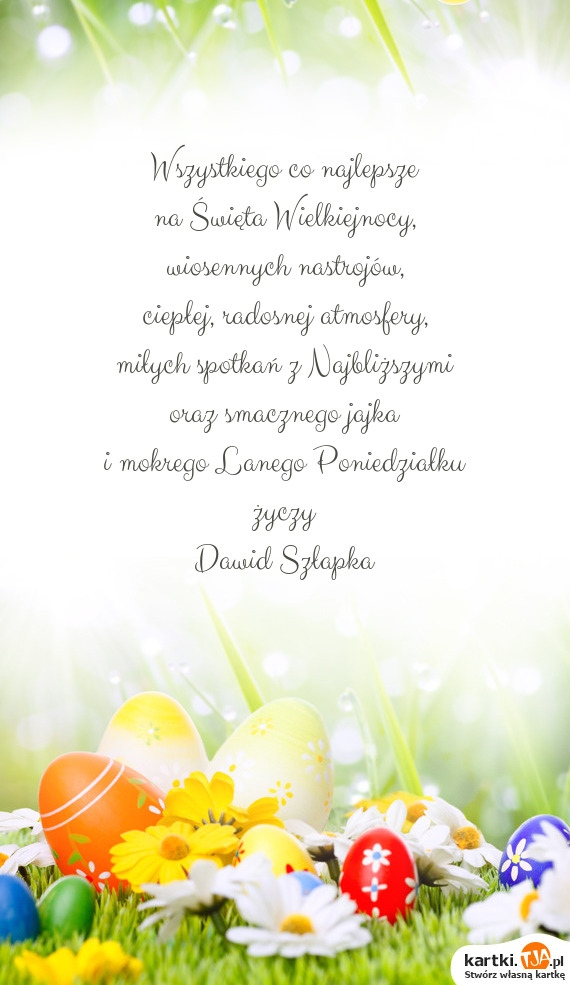 Wszystkiego co najlepsze
na Święta Wielkiejnocy,
wiosennych nastrojów,
ciepłej, radosnej atmosfery,
miłych spotkań z Najbliższymi
oraz smacznego jajka
i mokrego Lanego Poniedziałku
życzy
Dawid Szłapka
kartki.TJA.pl
Stwórz własną kartkę